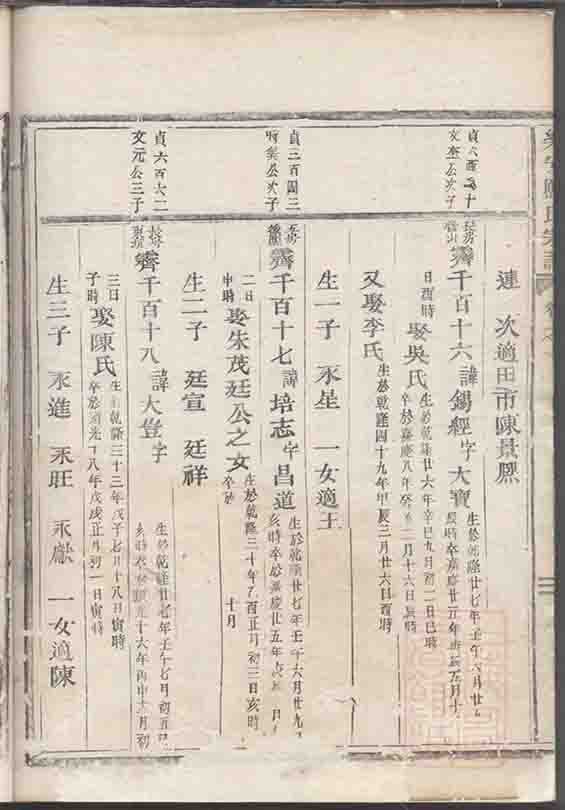 連 次適田市陳景熈
貞 百 十
文 公次子
長房
齊千百十六 諱錫經 字大寶 生於乾隆廿七年壬午六月廿
辰時卒嘉慶廿五年庚辰五月十
日酉時 娶吳氏 生於乾隆廿六年辛巳九月初二日巳時
卒於嘉慶八年癸亥二月十六日辰時
又娶李氏 生於乾隆四十九年甲辰三月廿六日酉時
生一子 永星 一女適王
貞三百四三
公次子
齊千百十七 諱培志 字昌道 生於乾隆廿七年壬午六月廿九
亥時卒於嘉慶廿五年 月
二日
申時 娶朱茂廷公之女 生於乾隆三十年乙酉正月初三日亥時
卒於 十月
生二子 廷宣 廷祥
貞六百六二
文元公三子
長房
齊千百十八 諱大登 字 生於乾隆廿七年壬午七月初五
亥時卒於道光十六年丙申 月初
三日
子時 娶陳氏 生於乾隆三十三年戊子七月十八日寅時
卒於道光十八年戊戌正月初一日寅時
生三子 永進 永旺 永獻 一女適陳